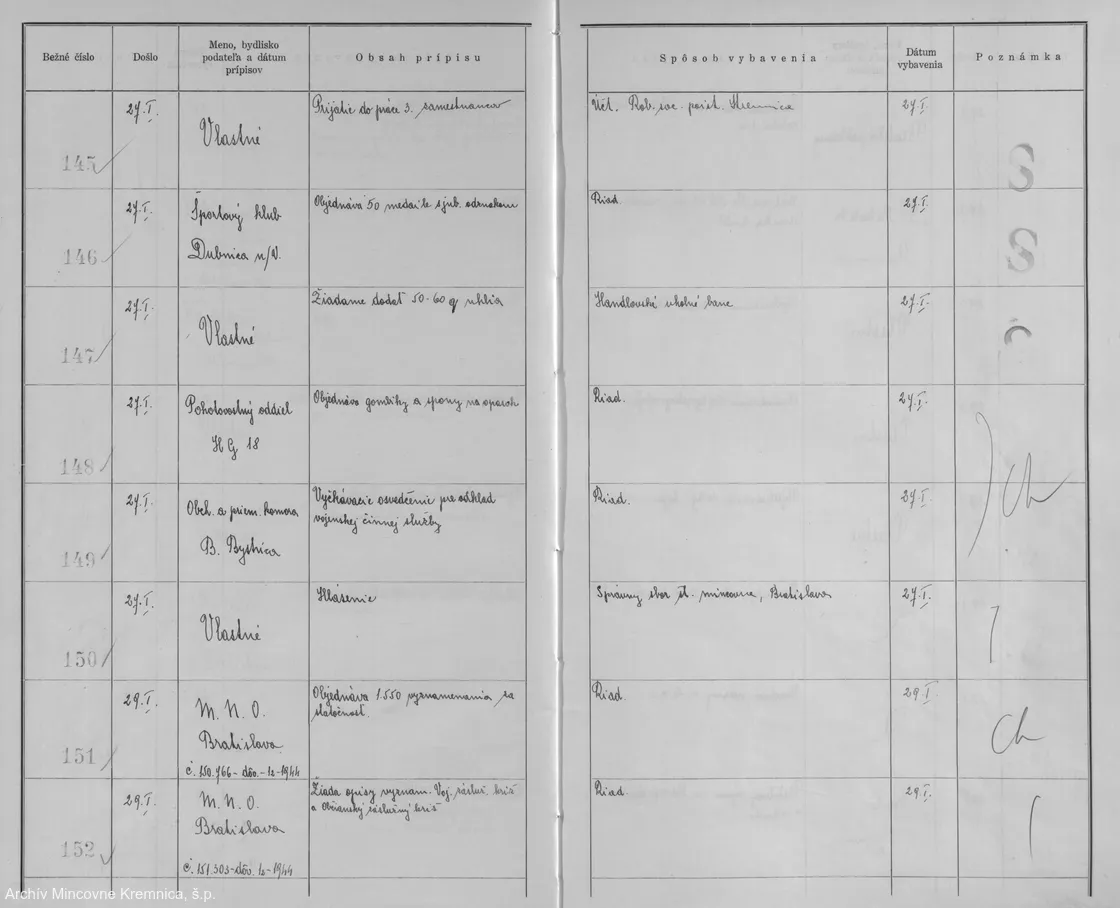 Bežné číslo
Došlo
Meno, bydlisko
podateľa a dátum
prípisov
Obsah prípisu
Spôsob vybavenia
Dátum
vybavenia
Poznámka
145
27.I.
Vlastné
Prijatie do práce 3. zamestnancov
Účt. Rob. soc. poist. Kremnica
27.I.
146
27.I.
Športový klub
Dubnica n/V.
Objednáva 50 medaile s jub. odznakom
Riad.
27.I.
147
27.I.
Vlastné
Žiadame dodať 50-60 q uhlia
Handlovské uholné bane
27.I.
148
27.I.
Pohotovostný oddiel
HG 18
Objednáva gombíky a spony na opasok
Riad.
27.I.
Ch
149
27.I.
Obch. a priem. komora
B. Bystrica
Vyčkávacie osvedčenie pre odklad
vojenskej činnej služby
Riad.
27.I.
150
27.I.
Vlastné
Hlásenie
Správny sbor št. mincovne, Bratislava
27.I.
151
29.I.
M. N. O.
Bratislava
č. 150.766-dôv.-12-1944
Objednáva 1.550 vyznamenania za
statočnosť.
Riad.
29.I.
Ch
152
29.I.
M. N. O.
Bratislava
č. 151.303-dôv. 12-1944
Žiada opisy vyznam. Voj. záslu. kríž
a Občianský záslužný kríž
Riad.
29.I.
Archív Mincovne Kremnica, š.p.